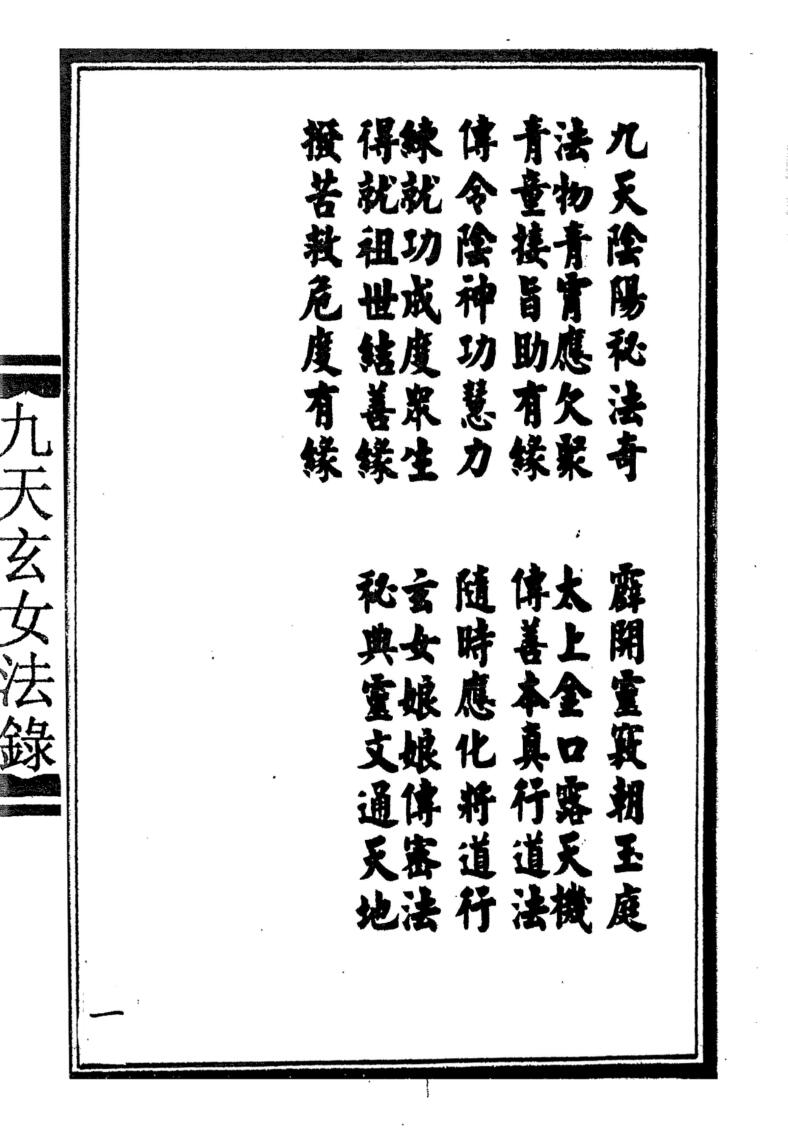 九天陰陽秘法奇 霹開靈竅朝玉庭
法物青霄應欠聚 太上金口露天機
青童接旨助有緣 傳善本真行道法
傳令陰神功慧力 隨時應化將道行
練就功成度眾生 玄女娘娘傳密法
得就祖世結善緣 秘典靈文通天地
撥苦救危度有緣
九天玄女法錄
一